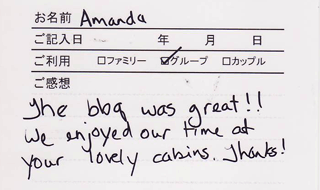 お名前 Amanda
ご記入日 年 月 日
ご利用 □ファミリー ☑グループ □カップル
ご感想
The bbq was great!!
We enjoyed our time at
your lovely cabins. Thanks!